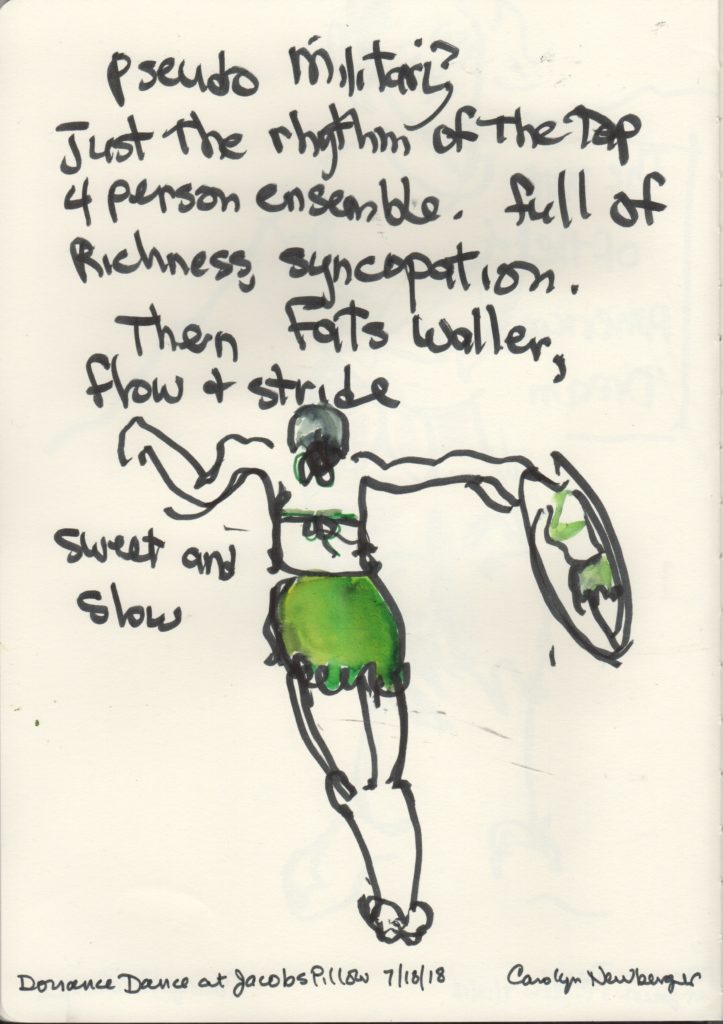 pseudo military?
Just the rhythm of the Tap
4 person ensemble. full of
Richness, syncopation.
Then Fats Waller,
flow + stride
sweet and
slow
Dorrance Dance at Jacobs Pillow 7/18/18
Carolyn Newberger